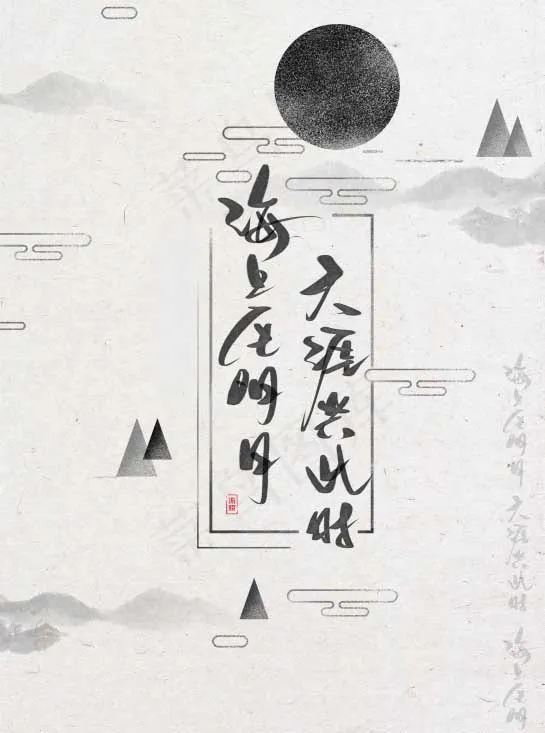 海上生明月
天涯共此时
海上生明月 天涯共此时 海上生明